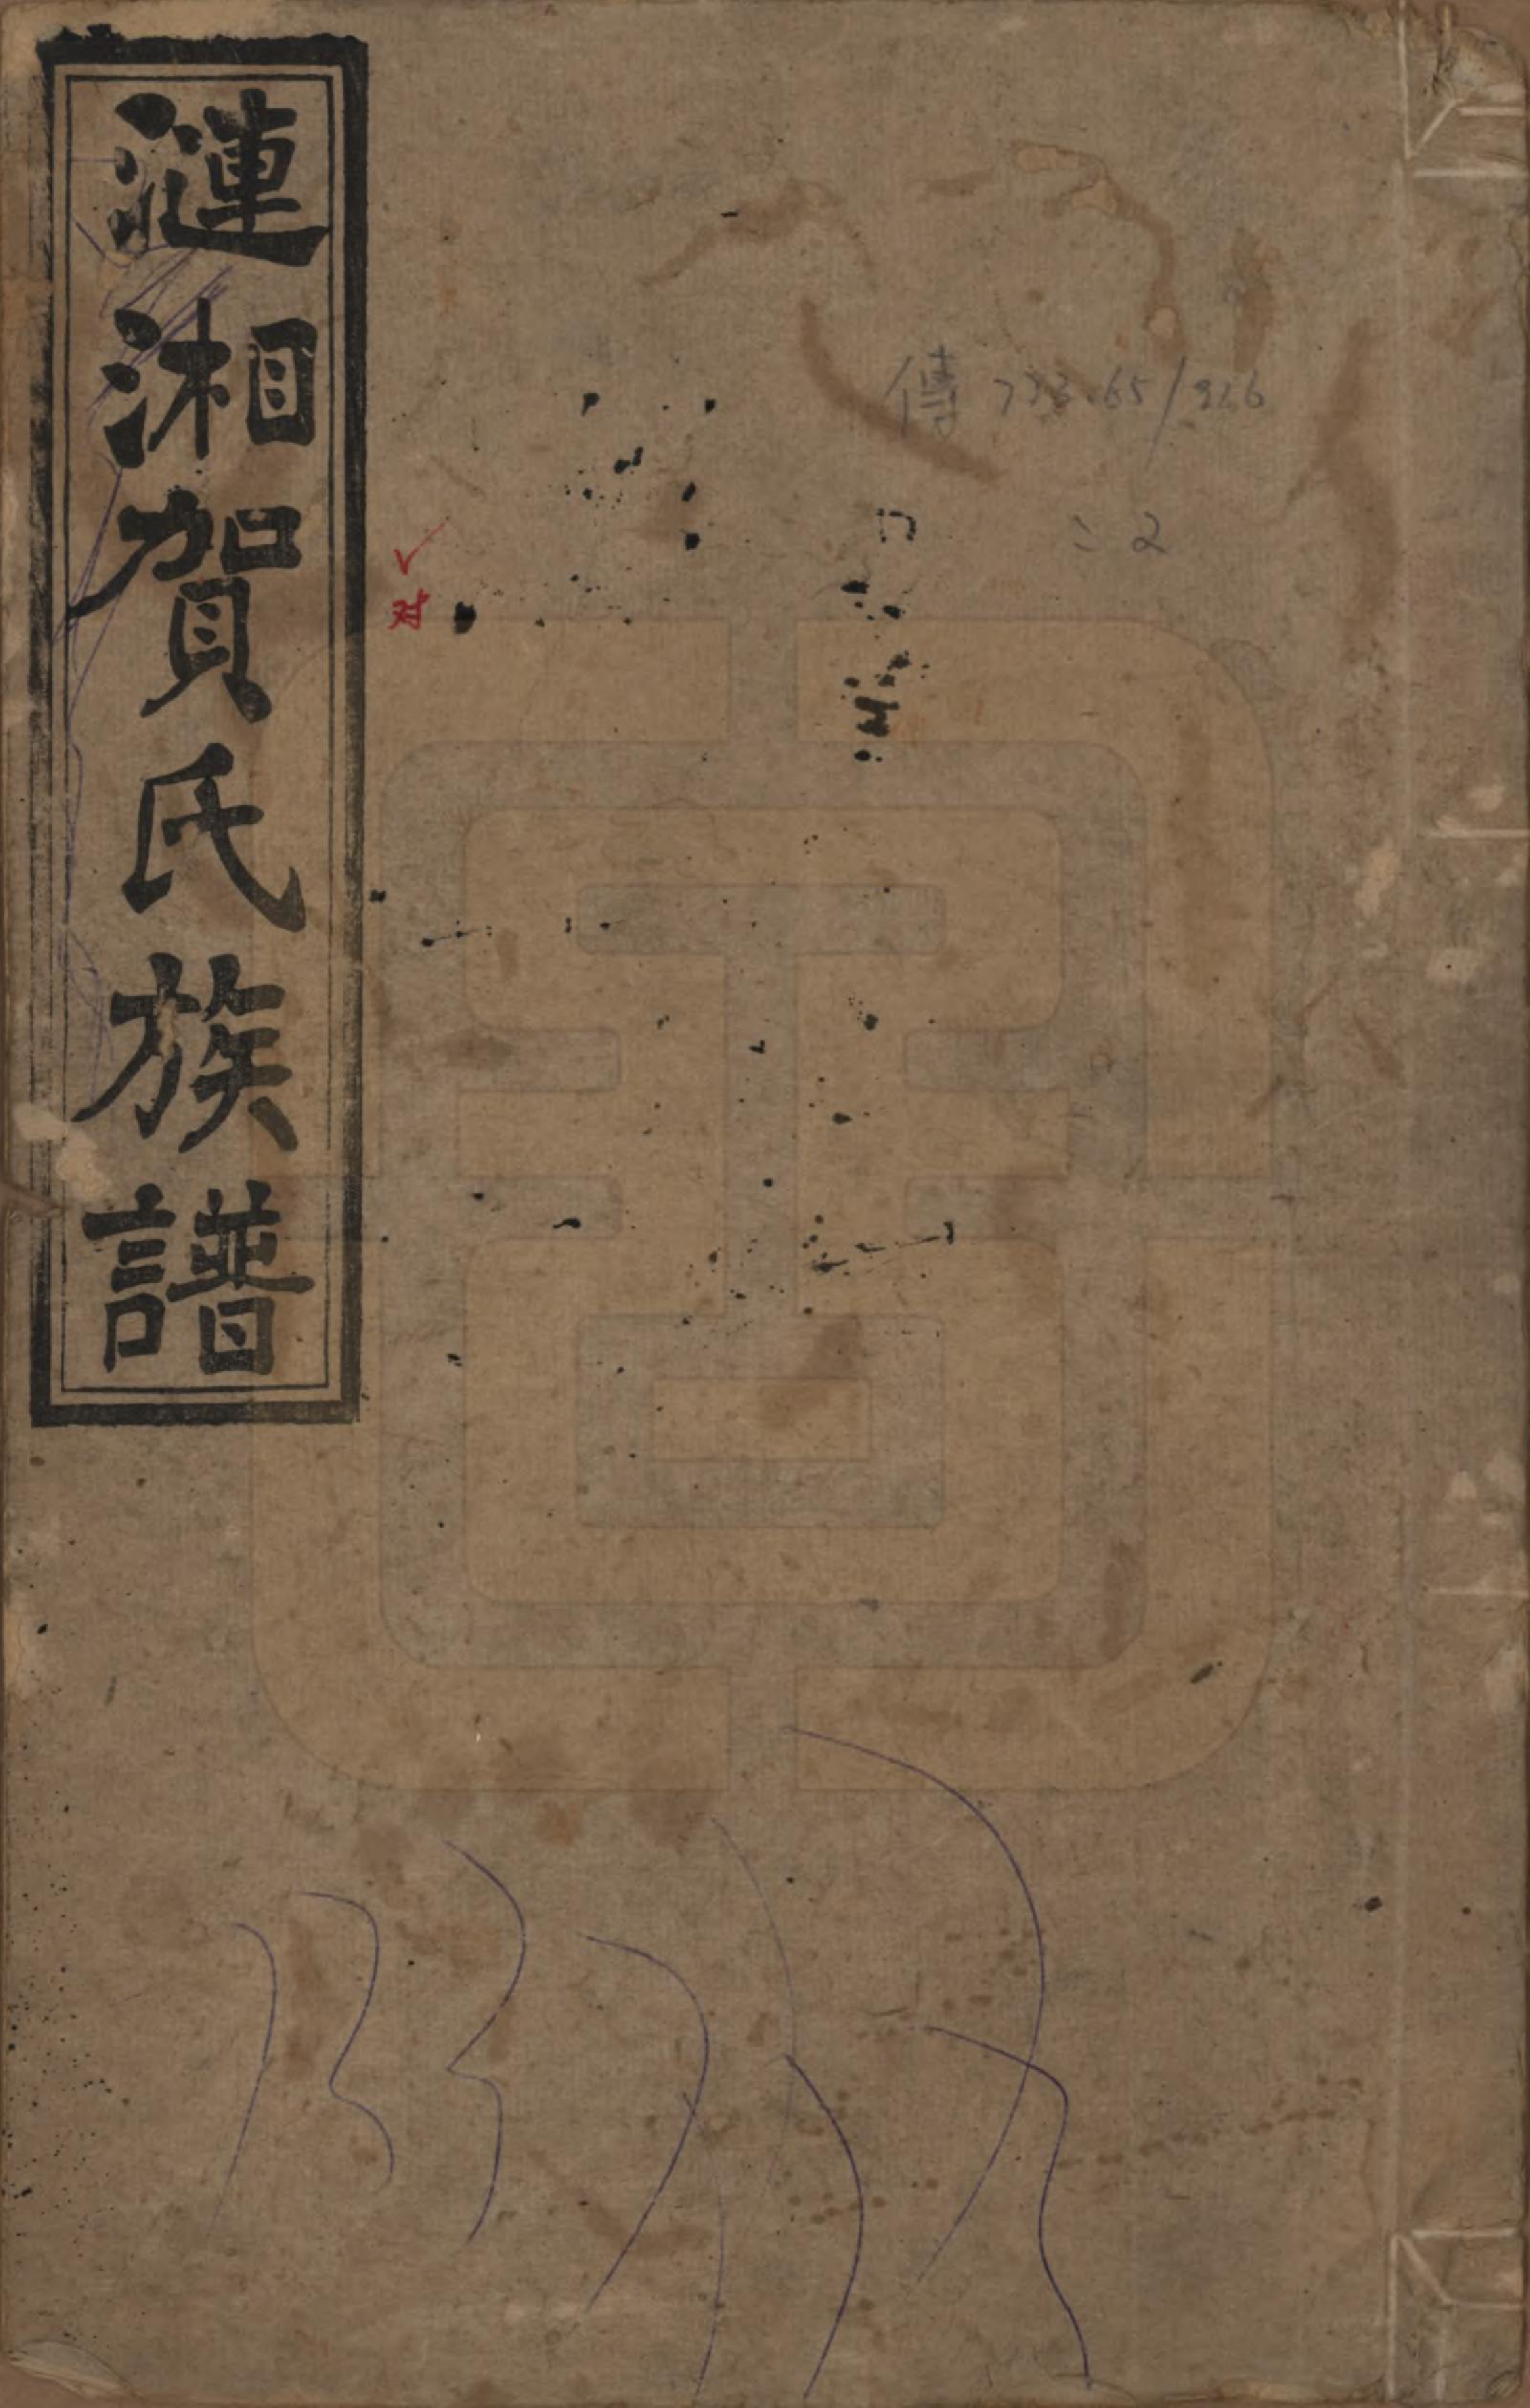 漣湘賀氏族譜
傳 733.65/926
:2
✓
对